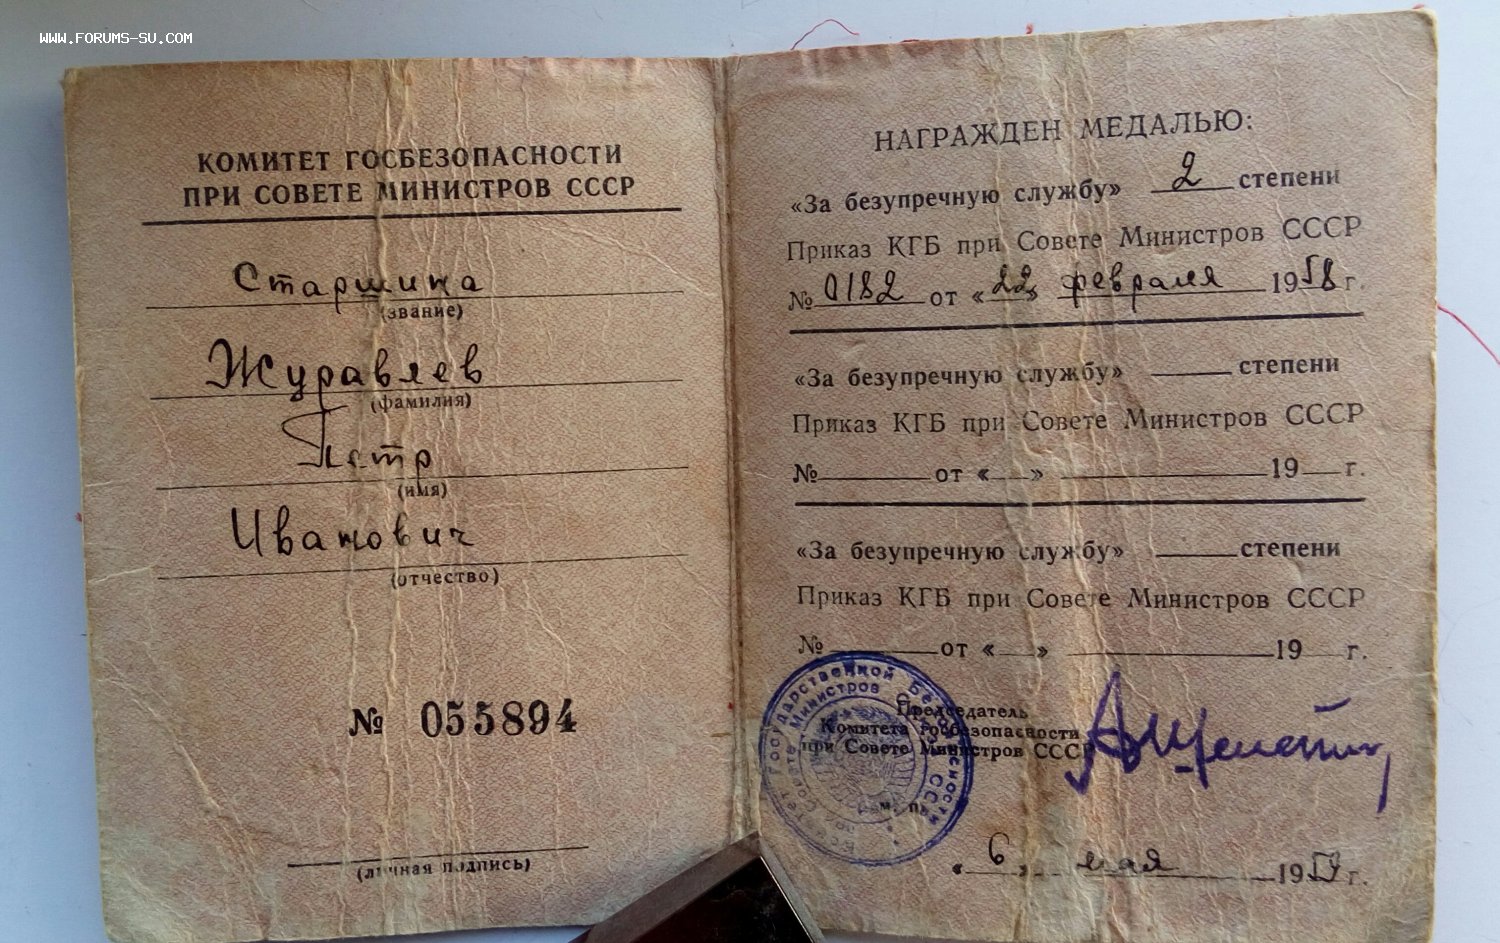 WWW.FORUMS-SU.COM
КОМИТЕТ ГОСБЕЗОПАСНОСТИ
ПРИ СОВЕТЕ МИНИСТРОВ СССР
Старшина
(звание)
Журавлев
(фамилия)
Петр
(имя)
Иванович
(отчество)
№ 055894
(личная подпись)
НАГРАЖДЕН МЕДАЛЬЮ:
«За безупречную службу» 2 степени
Приказ КГБ при Совете Министров СССР
№ 0182 от «22» февраля 1958 г.
«За безупречную службу» степени
Приказ КГБ при Совете Министров СССР
№ от « » 19 г.
«За безупречную службу» степени
Приказ КГБ при Совете Министров СССР
№ от « » 19 г.
Председатель
Комитета госбезопасности
при Совете Министров СССР
м. п.
«6» мая 195 г.
Государственной Безопасности
Совете Министров СССР